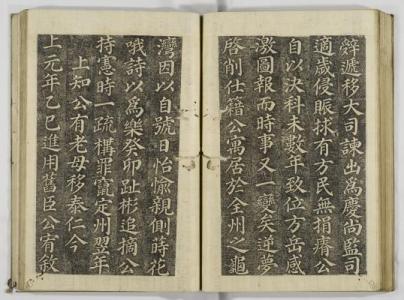 辤遞移大司諫出爲慶尚監司
適歲侵賑捄有方民無捐瘠公
自以決科未數年致位方岳感
激圖報而時事又一變矣逆夢
啓削仕籍公寓居於全州之龜
灣因以自號日怡愉親側時花
哦詩以爲樂癸卯趾彬追摘公
持憲時一疏構罪竄定州翌年
上知公有老母移泰仁今
上元年乙巳進用舊臣公宥敘